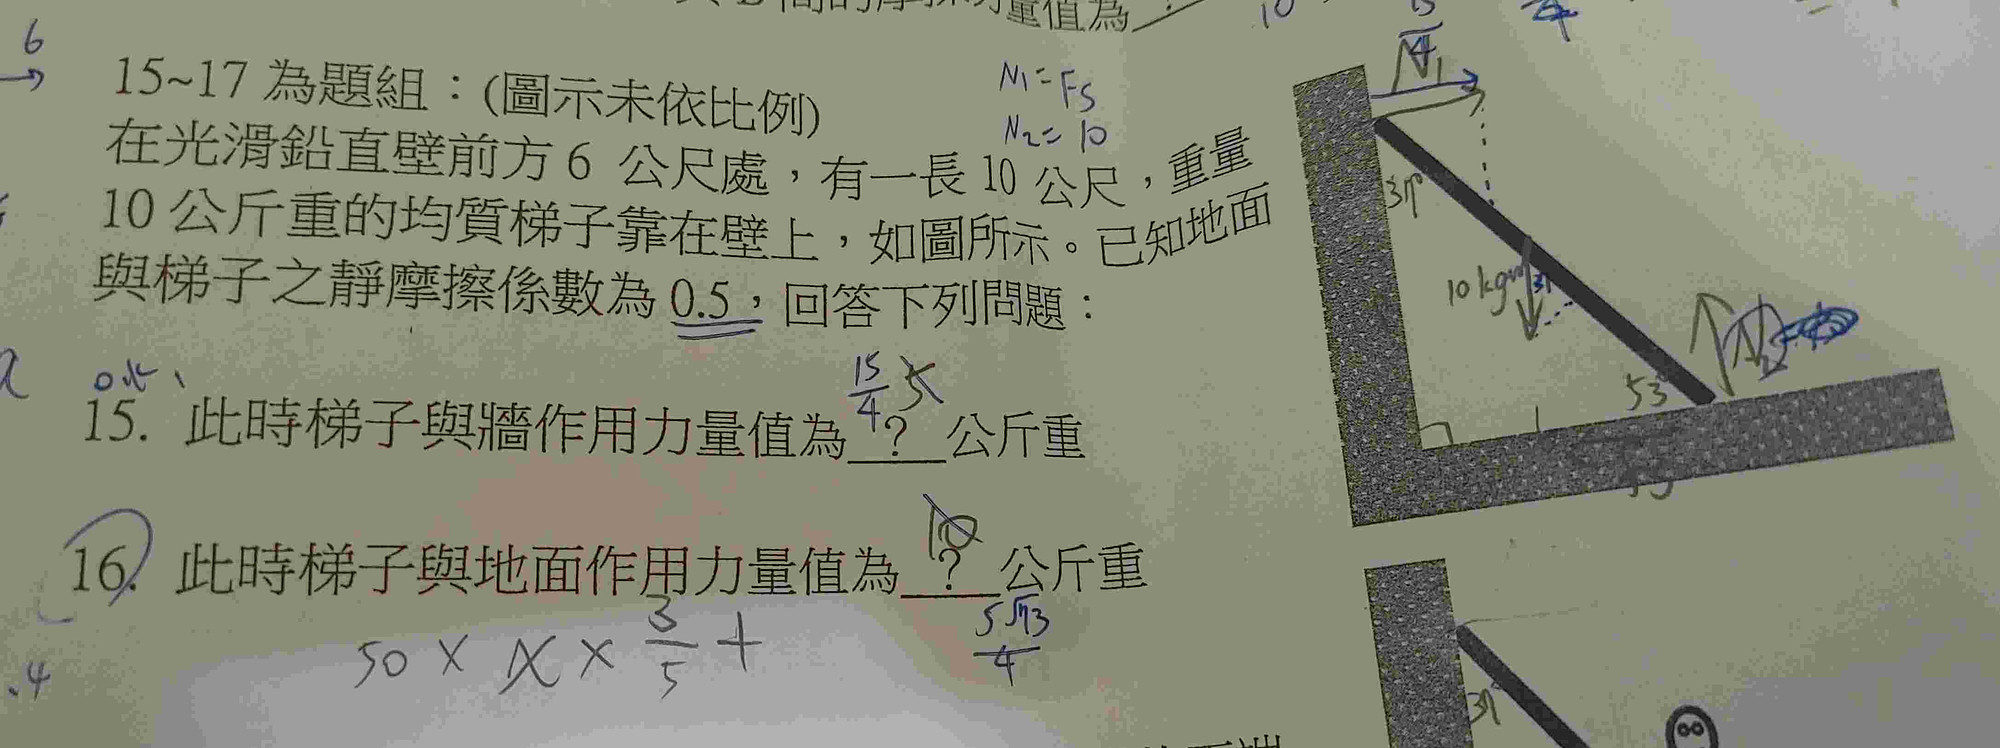 量值為
10
6
15~17 為題組：(圖示未依比例)
N1 = Fs
N2 = 10
在光滑鉛直壁前方 6 公尺處，有一長 10 公尺，重量
10 公斤重的均質梯子靠在壁上，如圖所示。已知地面
與梯子之靜摩擦係數為 0.5，回答下列問題：
15/4
N1
37°
10 kgw
37
N2
53
15/4 5
15. 此時梯子與牆作用力量值為 ? 公斤重
10
16. 此時梯子與地面作用力量值為 ? 公斤重
5√73/4
50 × × 3/5 +
.4
37°